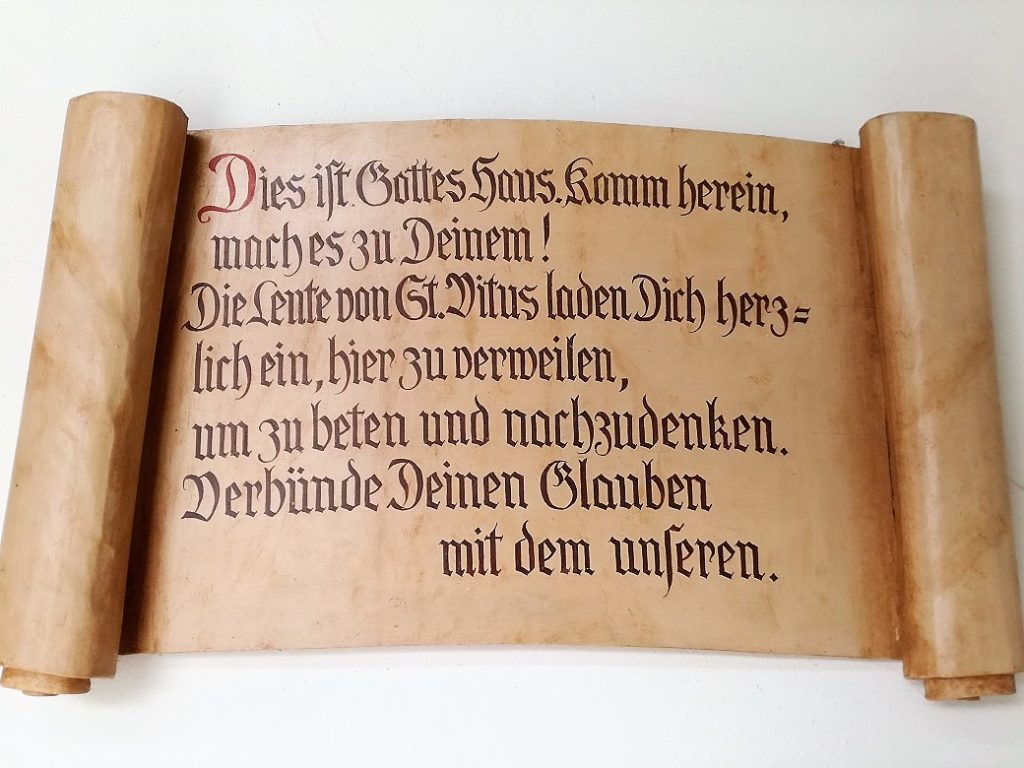 Dies iſt Gottes Haus. Komm herein,
mach es zu Deinem!
Die Leute von St. Vitus laden Dich herz=
lich ein, hier zu verweilen,
um zu beten und nachzudenken.
Verbünde Deinen Glauben
mit dem unſeren.